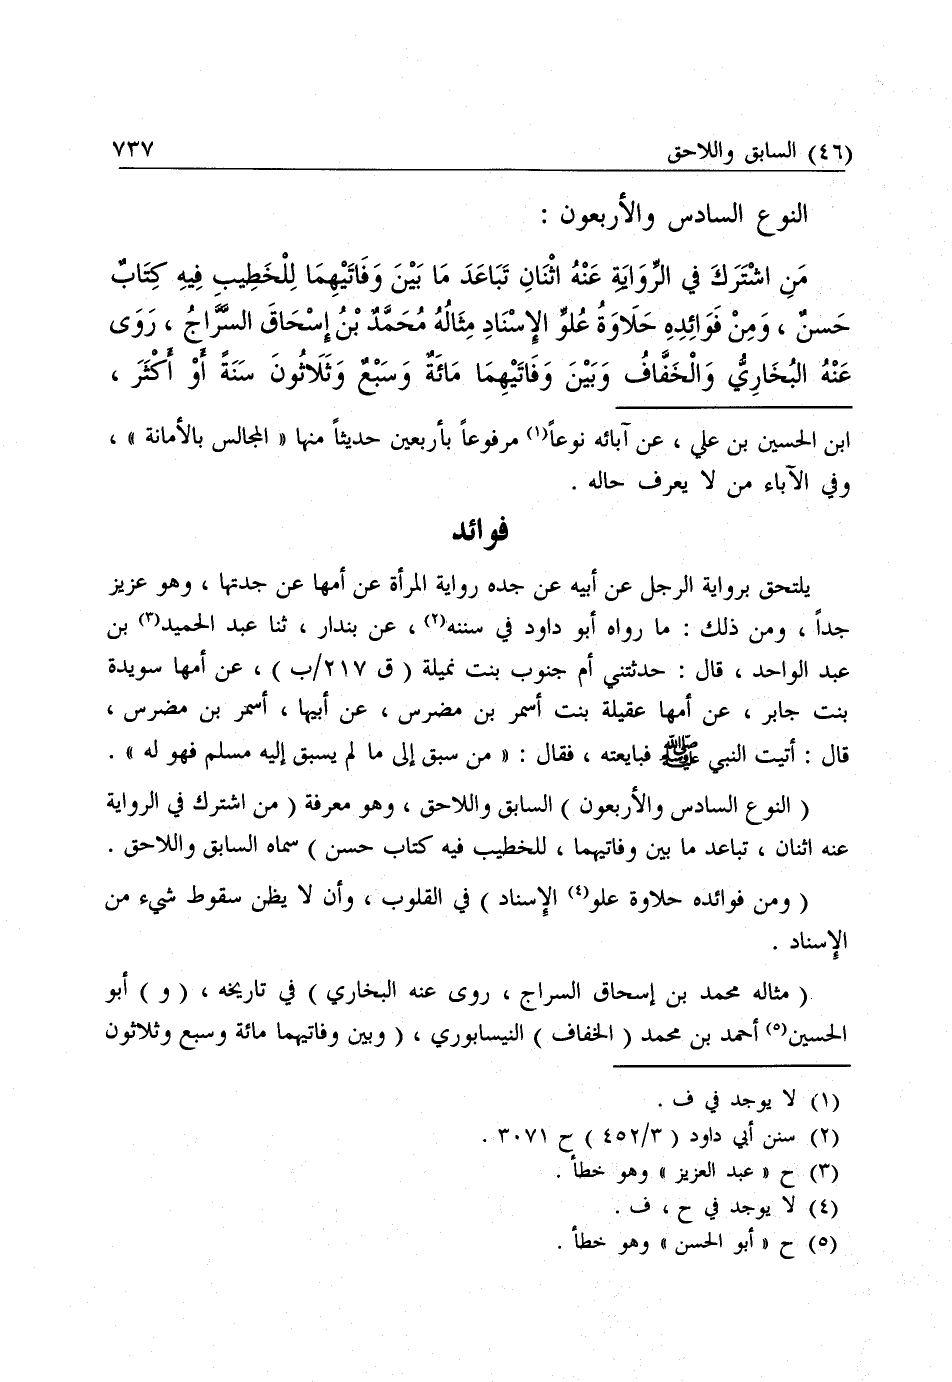 (٤٦) السابق واللاحق ٧٣٧
النوع السادس والأربعون :
مَنِ اشْتَرَكَ في الرِّوَايَةِ عَنْهُ اثْنَانِ تَبَاعَدَ مَا بَيْنَ وَفَاتَيْهِمَا لِلْخَطِيبِ فِيهِ كِتَابٌ
حَسنٌ ، وَمِنْ فَوَائِدِهِ حَلَاوَةُ عُلوِّ الإِسْنَادِ مِثَالُهُ مُحَمَّدُ بْنُ إِسْحَاقَ السَّرَّاجُ ، رَوَى
عَنْهُ البُخَارِيُّ وَالْخَفَّافُ وَبَيْنَ وَفَاتَيْهِمَا مَائَةٌ وَسَبْعٌ وَثَلَاثُونَ سَنَةً أَوْ أَكْثَرَ ،
ابن الحسين بن علي ، عن آبائه نوعاً(١) مرفوعاً بأربعين حديثاً منها « المجالس بالأمانة » ،
وفي الآباء من لا يعرف حاله .
فوائد
يلتحق برواية الرجل عن أبيه عن جده رواية المرأة عن أمها عن جدتها ، وهو عزيز
جداً ، ومن ذلك : ما رواه أبو داود في سننه(٢) ، عن بندار ، ثنا عبد الحميد(٣) بن
عبد الواحد ، قال : حدثتني أم جنوب بنت نميلة ( ق ٢١٧/ب ) ، عن أمها سويدة
بنت جابر ، عن أمها عقيلة بنت أسمر بن مضرس ، عن أبيها ، أسمر بن مضرس ،
قال : أتيت النبي ﷺ فبايعته ، فقال : « من سبق إلى ما لم يسبق إليه مسلم فهو له » .
( النوع السادس والأربعون ) السابق واللاحق ، وهو معرفة ( من اشترك في الرواية
عنه اثنان ، تباعد ما بين وفاتيهما ، للخطيب فيه كتاب حسن ) سماه السابق واللاحق .
( ومن فوائده حلاوة علو(٤) الإسناد ) في القلوب ، وأن لا يظن سقوط شيء من
الإسناد .
( مثاله محمد بن إسحاق السراج ، روى عنه البخاري ) في تاريخه ، ( و ) أبو
الحسين(٥) أحمد بن محمد ( الخفاف ) النيسابوري ، ( وبين وفاتيهما مائة وسبع وثلاثون
(١) لا يوجد في ف .
(٢) سنن أبي داود ( ٤٥٢/٣ ) ح ٣٠٧١ .
(٣) ح « عبد العزيز » وهو خطأ .
(٤) لا يوجد في ح ، ف .
(٥) ح « أبو الحسن » وهو خطأ .